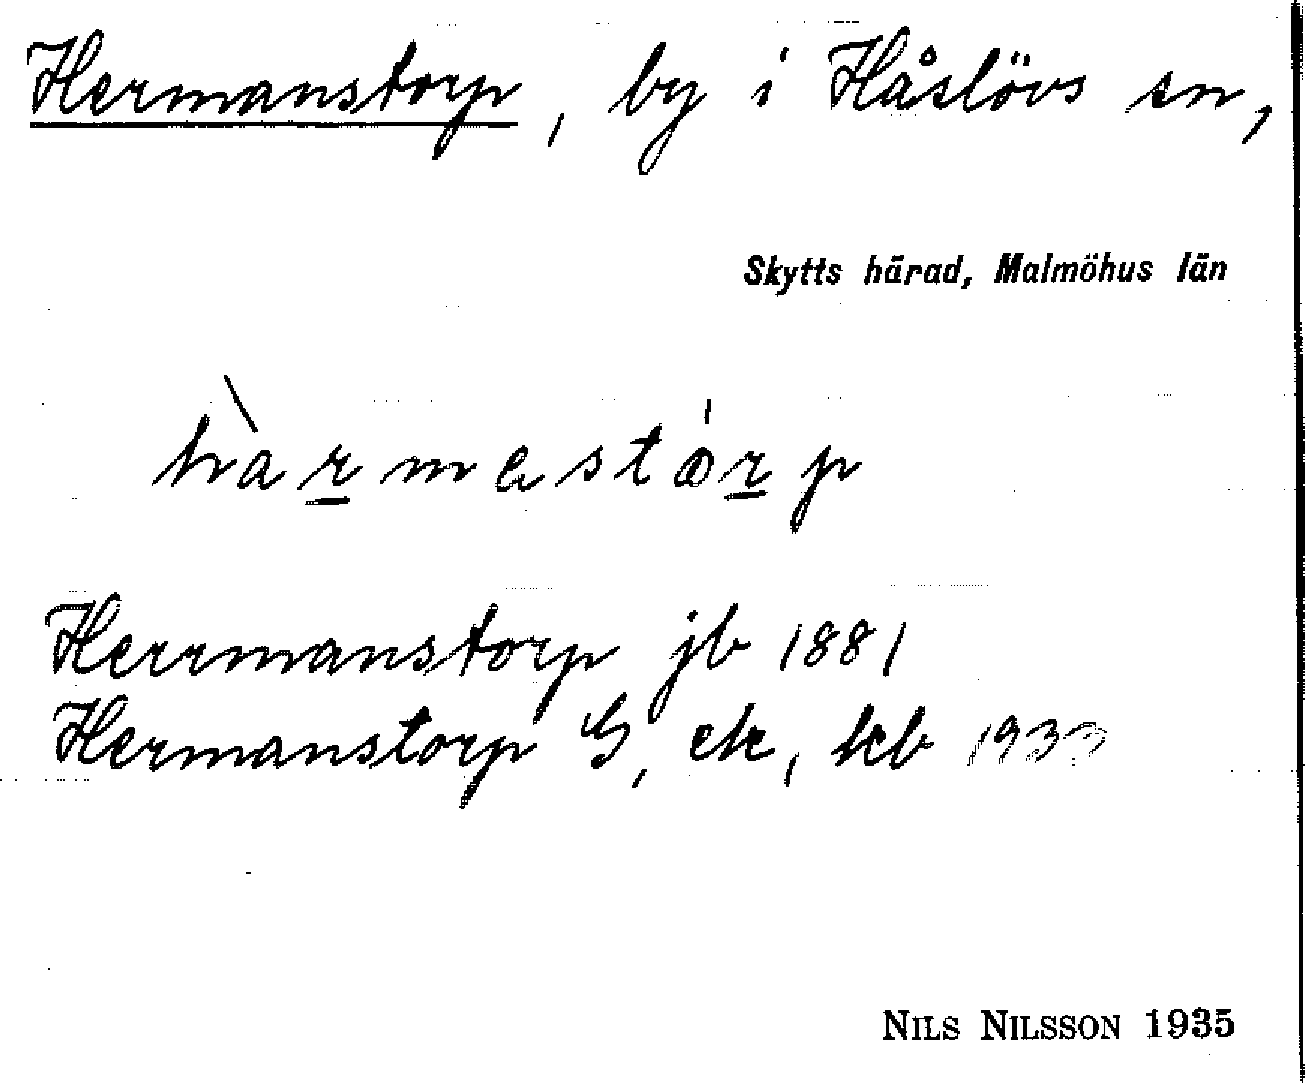 Hermanstorp, by i Håslövs sn,
Skytts härad, Malmöhus län
hàrmestórp
Herrmanstorp jb 1881
Hermanstorp G, ek, kb 1933
NILS NILSSON 1935